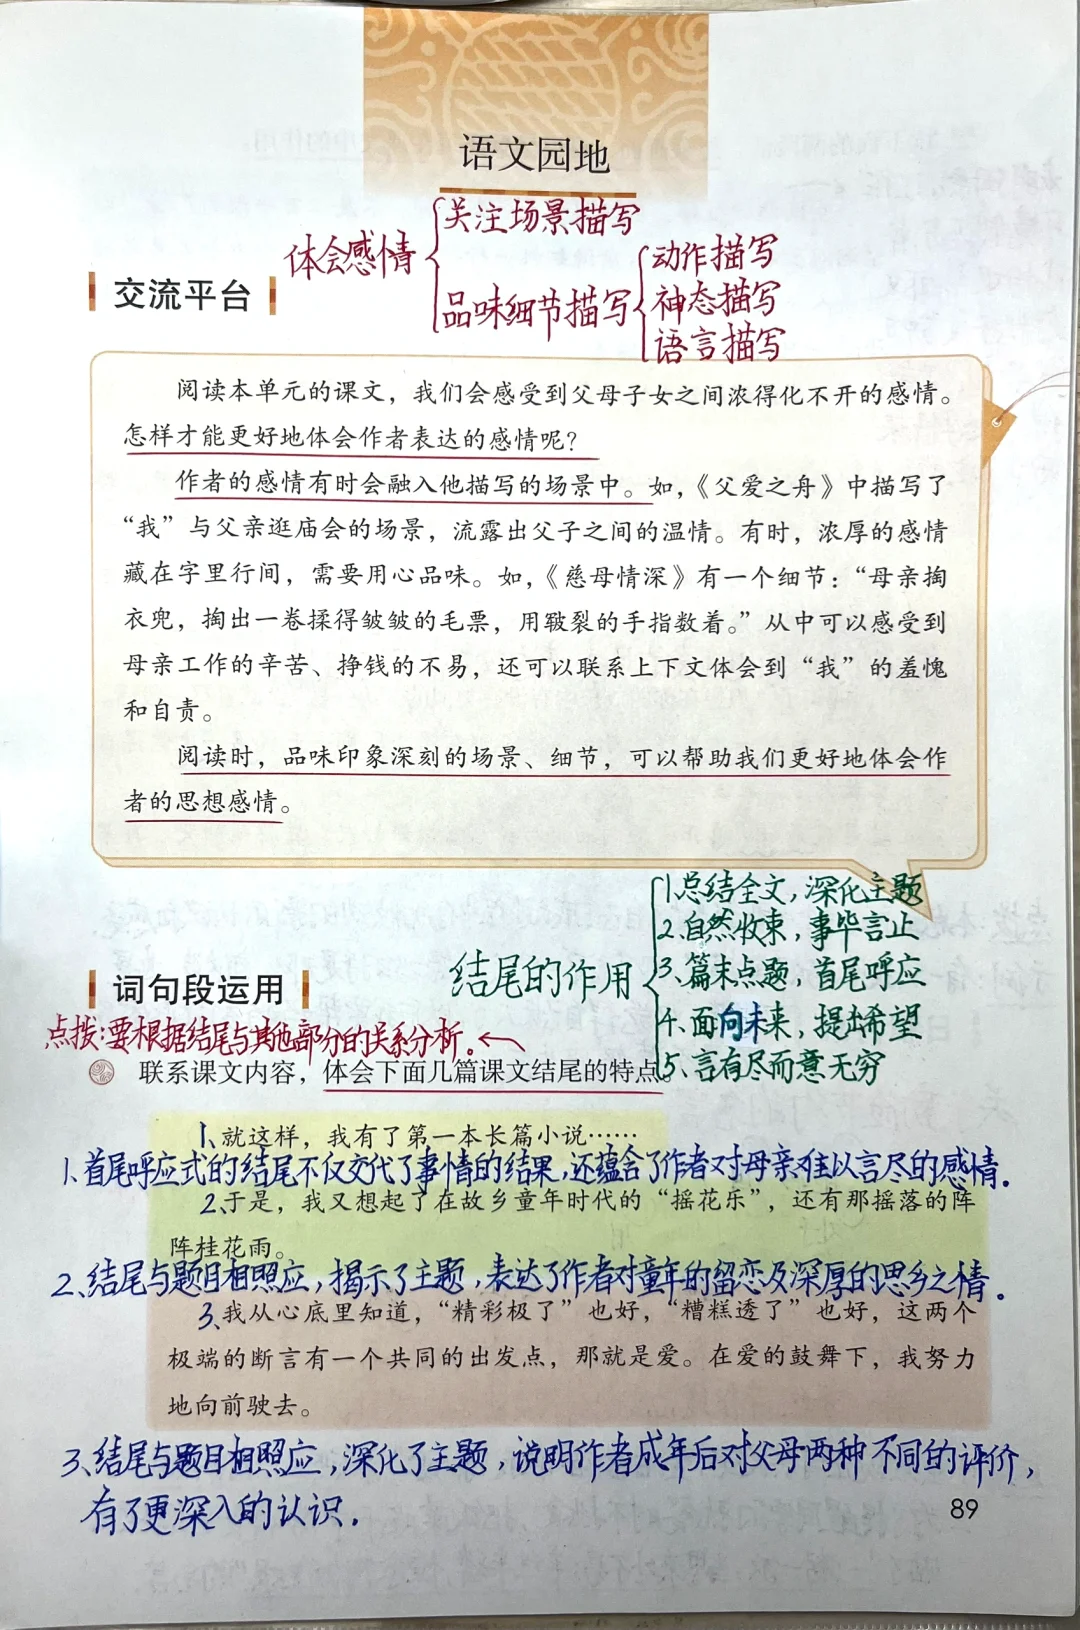 语文园地
体会感情
关注场景描写
品味细节描写
动作描写
神态描写
语言描写
交流平台
阅读本单元的课文，我们会感受到父母子女之间浓得化不开的感情。
怎样才能更好地体会作者表达的感情呢？
作者的感情有时会融入他描写的场景中。如，《父爱之舟》中描写了
“我”与父亲逛庙会的场景，流露出父子之间的温情。有时，浓厚的感情
藏在字里行间，需要用心品味。如，《慈母情深》有一个细节：“母亲掏
衣兜，掏出一卷揉得皱皱的毛票，用皲裂的手指数着。”从中可以感受到
母亲工作的辛苦、挣钱的不易，还可以联系上下文体会到“我”的羞愧
和自责。
阅读时，品味印象深刻的场景、细节，可以帮助我们更好地体会作
者的思想感情。
结尾的作用
1、总结全文，深化主题
2、自然收束，事毕言止
3、篇末点题，首尾呼应
4、面向未来，提出希望
5、言有尽而意无穷
词句段运用
点拨：要根据结尾与其他部分的关系分析。
联系课文内容，体会下面几篇课文结尾的特点。
1、就这样，我有了第一本长篇小说……
1、首尾呼应式的结尾不仅交代了事情的结果，还蕴含了作者对母亲难以言尽的感情.
2、于是，我又想起了在故乡童年时代的“摇花乐”，还有那摇落的阵
阵桂花雨。
2、结尾与题目相照应，揭示了主题，表达了作者对童年的留恋及深厚的思乡之情.
3、我从心底里知道，“精彩极了”也好，“糟糕透了”也好，这两个
极端的断言有一个共同的出发点，那就是爱。在爱的鼓舞下，我努力
地向前驶去。
3、结尾与题目相照应，深化了主题，说明作者成年后对父母两种不同的评价，
有了更深入的认识.
89